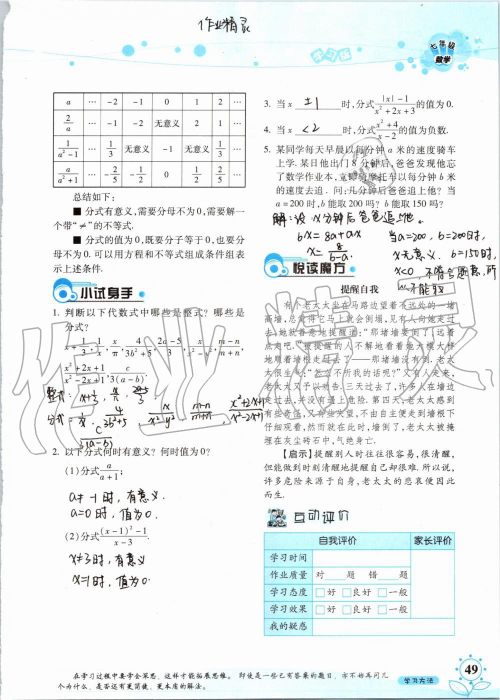 作业精灵
学习版
七年级
数学
a … -2 -1 0 1 2 …
2/a … -1 … 无意义 2 1 …
1/(a²-1) … 1/3 无意义 -1 无意义 1/3 …
a/(a²+1) … -2/5 … 0 1/2 2/5 …
总结如下:
■ 分式有意义,需要分母不为 0,需要解一
个带“≠”的不等式.
■ 分式的值为 0,既要分子等于 0,也要分
母不为 0.可以用方程和不等式组成条件组表
示上述条件.
小试身手
1. 判断以下代数式中哪些是整式?哪些是
分式?
2. 以下分式何时有意义?何时值为 0?
(1)分式 a/(a+1);
a≠-1时,有意义
a=0时,值为0.
(2)分式 ((x-1)²-1)/(x-3).
x≠3时,有意义
3. 当 x ±1 时,分式 (|x|-1)/(x²+2x+3) 的值为 0.
4. 当 x <2 时,分式的值为负数.
5. 某同学每天早晨以每分钟 a 米的速度骑车
上学.某日他出门 8 分钟后,爸爸发现他忘
了数学作业本,立即骑摩托车以每分钟 b 米
的速度去追.问:几分钟后爸爸追上他?当
a=200 时,b 能取 200 吗?b 能取 150 吗?
解:设x分钟后爸爸追上他.
bx=8a+ax 当a=200,b=200时,
x无意义. b=150时,
x<0 不符合题意,所以
不能取
悦读魔方
提醒自我
有个老太太坐在马路边望着不远处的一堵
高墙,总觉得它马上就会倒塌,见有人向她走过
去,她就善意地提醒道:“那堵墙要倒了,远着
点走吧.”被提醒的人不解地看着她大模大样
地顺着墙根走过去了——那堵墙没有倒.老太
太很生气:“怎么不听我的话呢?”又有人走来,
老太太又予以劝告.三天过去了,许多人在墙边
走过去,并没有遇上危险.第四天,老太太感到
有些奇怪,又有些失望,不由自主便走到墙根下
仔细观看,然而就在此时,墙倒了,老太太被掩
埋在灰尘砖石中,气绝身亡.
【启示】提醒别人时往往很容易,很清醒,
但能做到时刻清醒地提醒自己却很难.所以说,
许多危险来源于自身,老太太的悲哀便因此
而生.
互动评价
自我评价 家长评价
学习时间
作业质量 对 题 错 题
学习态度 □好 □良好 □一般
学习效果 □好 □良好 □一般
我的疑惑
在学习过程中要学会深思,这样才能拓展思维。即使是一些已有答案的题目,亦不妨再问几
个为什么,是否还有更简捷、更本质的解法。
学习方法
49